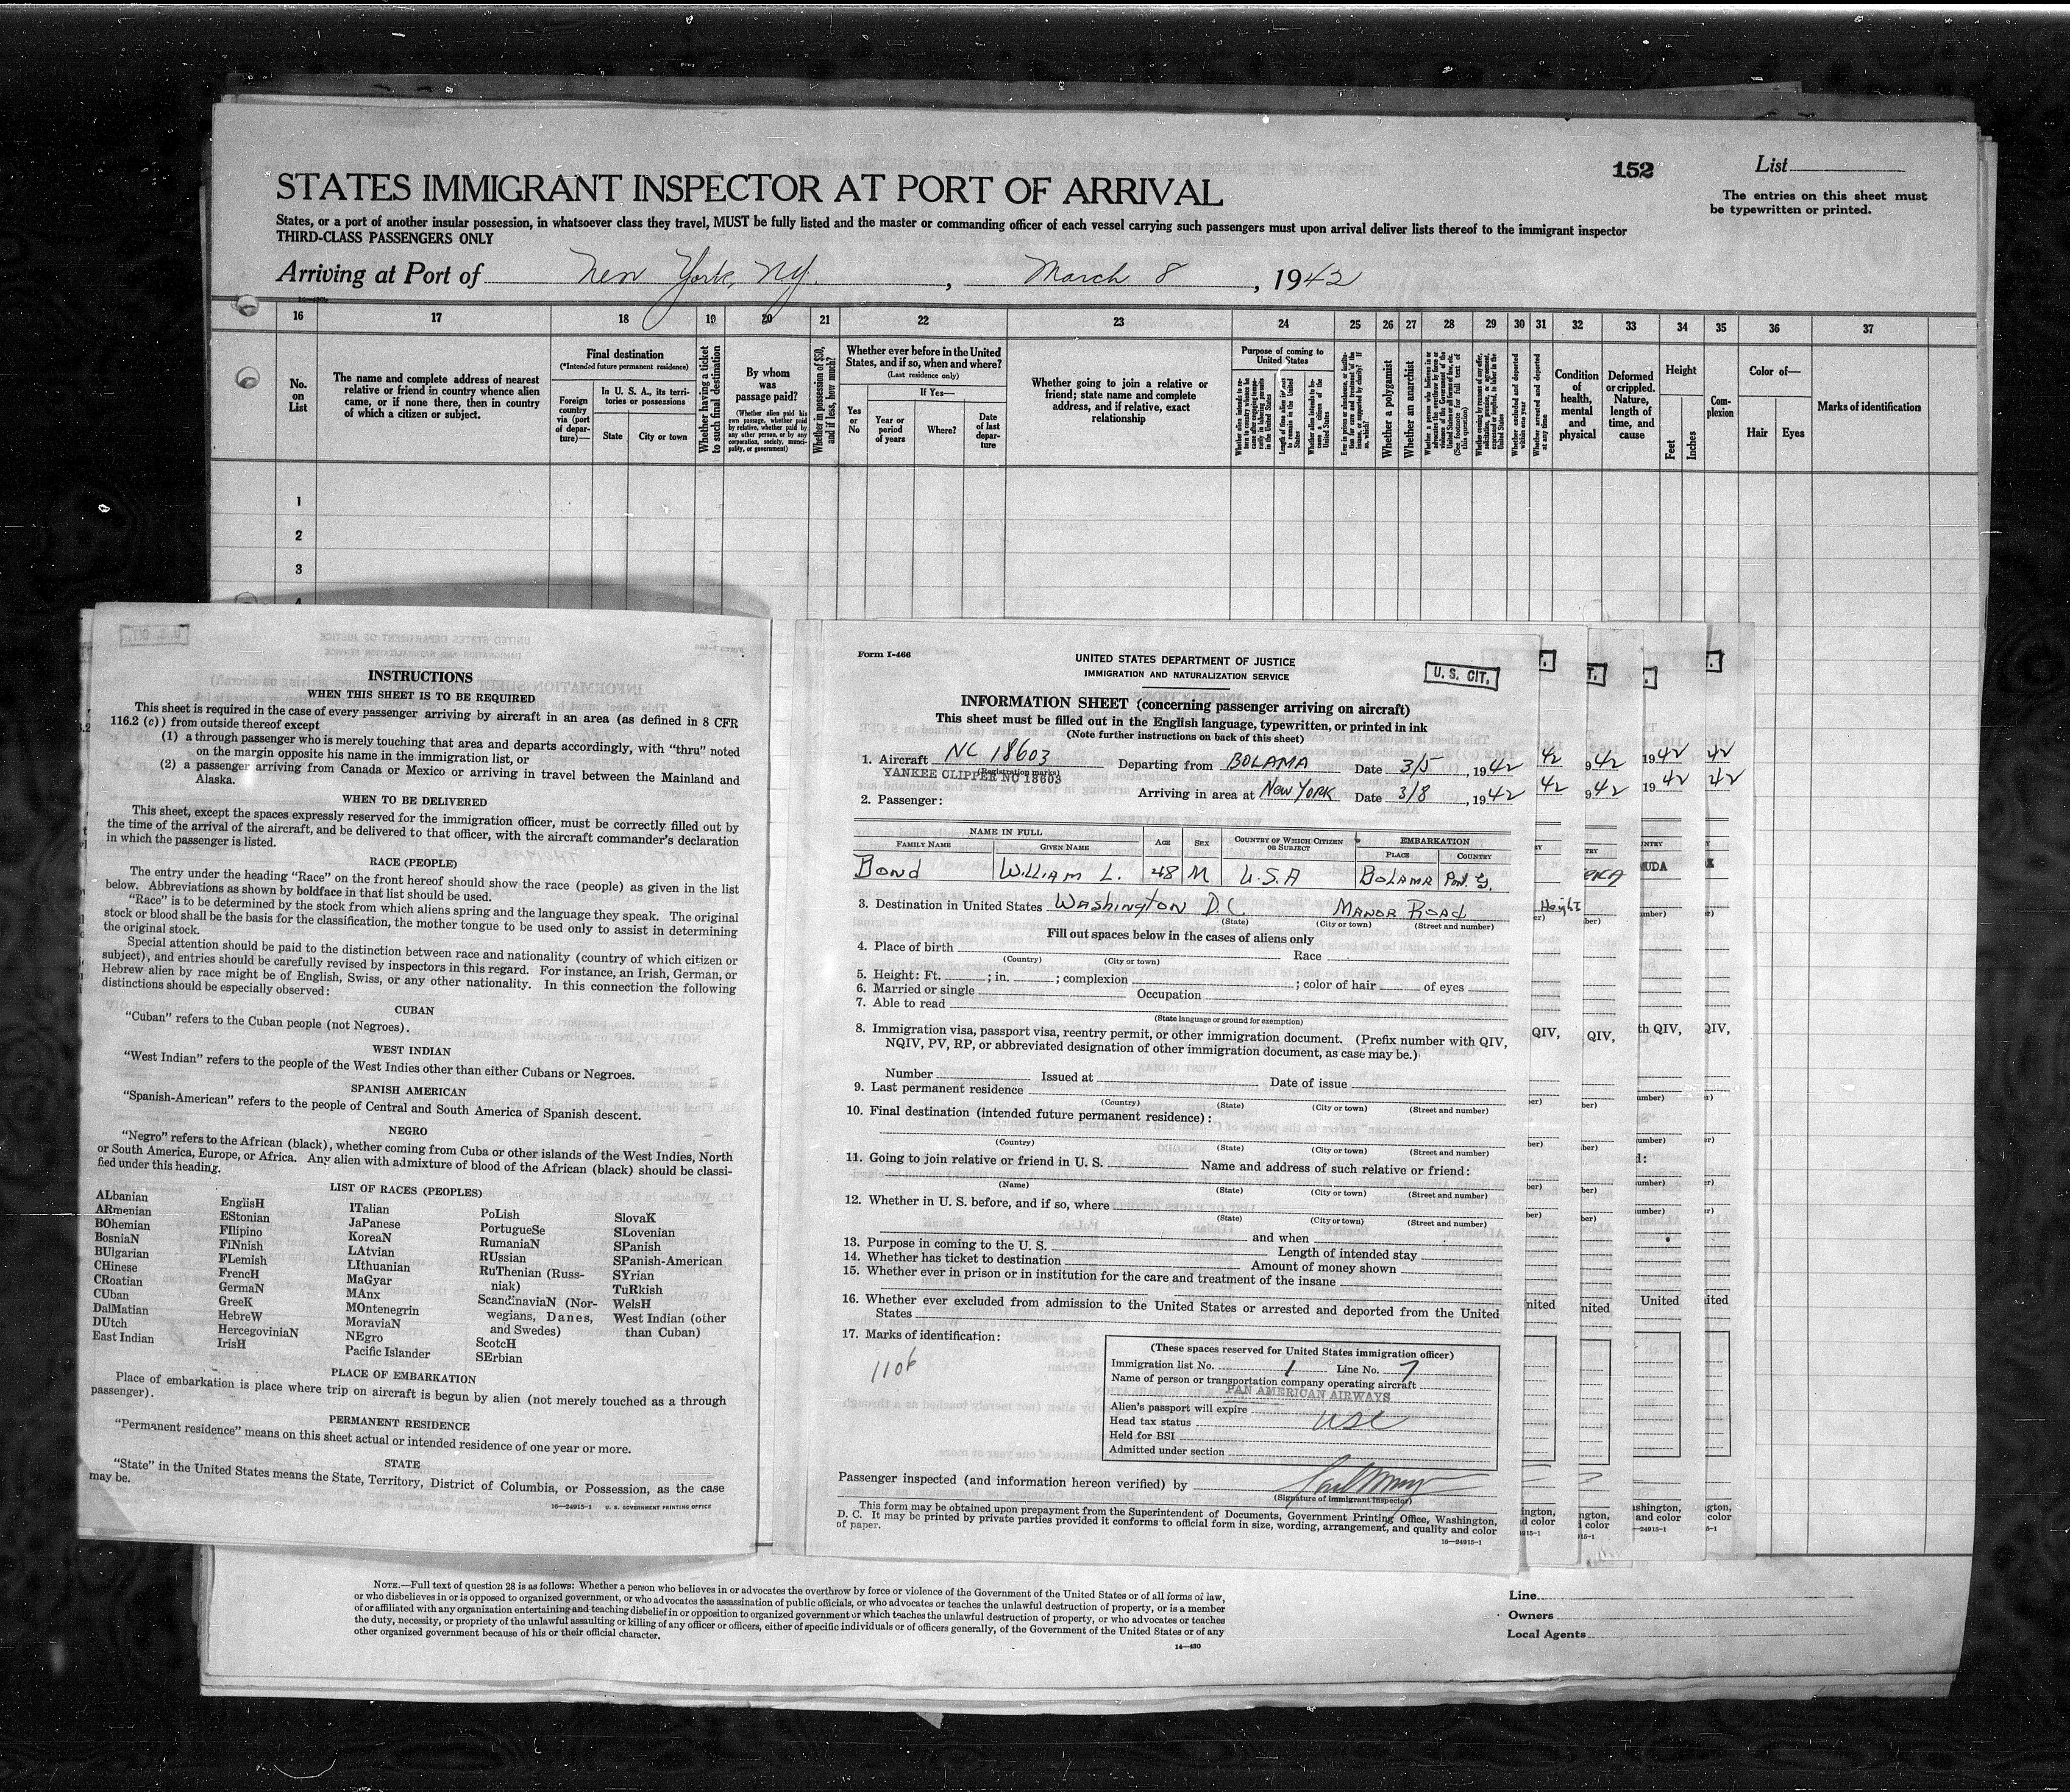 152
List
The entries on this sheet must
be typewritten or printed.
STATES IMMIGRANT INSPECTOR AT PORT OF ARRIVAL
States, or a port of another insular possession, in whatsoever class they travel, MUST be fully listed and the master or commanding officer of each vessel carrying such passengers must upon arrival deliver lists thereof to the immigrant inspector
THIRD-CLASS PASSENGERS ONLY
Arriving at Port of New York, NY. , March 8 , 1942
16 17 18 19 20 21 22 23 24 25 26 27 28 29 30 31 32 33 34 35 36 37
No.
on
List
The name and complete address of nearest
relative or friend in country whence alien
came, or if none there, then in country
of which a citizen or subject.
Final destination
(*Intended future permanent residence)
Foreign
country
via (port
of depar-
ture)—
In U. S. A., its terri-
tories or possessions
State
City or town
Whether having a ticket
to such final destination
By whom
was
passage paid?
(Whether alien paid his
own passage, whether paid
by relative, whether paid by
any other person, or by any
corporation, society, munici-
pality, or government)
Whether in possession of $50,
and if less, how much?
Whether ever before in the United
States, and if so, when and where?
(Last residence only)
Yes
or
No
If Yes—
Year or
period
of years
Where?
Date
of last
depar-
ture
Whether going to join a relative or
friend; state name and complete
address, and if relative, exact
relationship
Purpose of coming to
United States
Length of time alien intends
to remain in the United
States
Whether alien intends to be-
come a citizen of the
United States
Whether a polygamist
Whether an anarchist
Whether excluded and deported
within one year
Whether arrested and deported
at any time
Condition
of
health,
mental
and
physical
Deformed
or crippled.
Nature,
length of
time, and
cause
Height
Feet
Inches
Com-
plexion
Color of—
Hair
Eyes
Marks of identification
1
2
3
4
INSTRUCTIONS
WHEN THIS SHEET IS TO BE REQUIRED
This sheet is required in the case of every passenger arriving by aircraft in an area (as defined in 8 CFR
116.2 (c)) from outside thereof except
(1) a through passenger who is merely touching that area and departs accordingly, with "thru" noted
on the margin opposite his name in the immigration list, or
(2) a passenger arriving from Canada or Mexico or arriving in travel between the Mainland and
Alaska.
WHEN TO BE DELIVERED
This sheet, except the spaces expressly reserved for the immigration officer, must be correctly filled out by
the time of the arrival of the aircraft, and be delivered to that officer, with the aircraft commander's declaration
in which the passenger is listed.
RACE (PEOPLE)
The entry under the heading "Race" on the front hereof should show the race (people) as given in the list
below. Abbreviations as shown by boldface in that list should be used.
"Race" is to be determined by the stock from which aliens spring and the language they speak. The original
stock or blood shall be the basis for the classification, the mother tongue to be used only to assist in determining
the original stock.
Special attention should be paid to the distinction between race and nationality (country of which citizen or
subject), and entries should be carefully revised by inspectors in this regard. For instance, an Irish, German, or
Hebrew alien by race might be of English, Swiss, or any other nationality. In this connection the following
distinctions should be especially observed:
CUBAN
"Cuban" refers to the Cuban people (not Negroes).
WEST INDIAN
"West Indian" refers to the people of the West Indies other than either Cubans or Negroes.
SPANISH AMERICAN
"Spanish-American" refers to the people of Central and South America of Spanish descent.
NEGRO
"Negro" refers to the African (black), whether coming from Cuba or other islands of the West Indies, North
or South America, Europe, or Africa. Any alien with admixture of blood of the African (black) should be classi-
fied under this heading.
LIST OF RACES (PEOPLES)
ALbanian
ARmenian
BOhemian
BosniaN
BUlgarian
CHinese
CRoatian
CUban
DalMatian
DUtch
East Indian
EnglisH
EStonian
FIlipino
FiNnish
FLemish
FrencH
GermaN
GreeK
HebreW
HercegoviniaN
IrisH
ITalian
JaPanese
KoreaN
LAtvian
LIthuanian
MaGyar
MAnx
MOntenegrin
MoraviaN
NEgro
Pacific Islander
PoLish
PortugueSe
RumaniaN
RUssian
RuThenian (Russ-
niak)
ScandinaviaN (Nor-
wegians, Danes,
and Swedes)
ScotcH
SErbian
SlovaK
SLovenian
SPanish
SPanish-American
SYrian
TuRkish
WelsH
West Indian (other
than Cuban)
PLACE OF EMBARKATION
Place of embarkation is place where trip on aircraft is begun by alien (not merely touched as a through
passenger).
PERMANENT RESIDENCE
"Permanent residence" means on this sheet actual or intended residence of one year or more.
STATE
"State" in the United States means the State, Territory, District of Columbia, or Possession, as the case
may be.
16—24915-1 U. S. GOVERNMENT PRINTING OFFICE
Form I-466
UNITED STATES DEPARTMENT OF JUSTICE
IMMIGRATION AND NATURALIZATION SERVICE
U. S. CIT.
INFORMATION SHEET (concerning passenger arriving on aircraft)
This sheet must be filled out in the English language, typewritten, or printed in ink
(Note further instructions on back of this sheet)
1. Aircraft NC 18603 Departing from BOLAMA Date 3/5, 1942
(Registration marks)
YANKEE CLIPPER NC 18603
Arriving in area at NEW YORK Date 3/8, 1942
2. Passenger:
NAME IN FULL
FAMILY NAME GIVEN NAME AGE SEX COUNTRY OF WHICH CITIZEN OR SUBJECT EMBARKATION
PLACE COUNTRY
BOND WILLIAM L. 48 M U.S.A BOLAMA Port. G.
3. Destination in United States Washington D.C. MANOR ROAD
(State) (City or town) (Street and number)
Fill out spaces below in the cases of aliens only
4. Place of birth Race
(Country) (City or town)
5. Height: Ft. ; in. ; complexion ; color of hair of eyes
6. Married or single Occupation
7. Able to read
(State language or ground for exemption)
8. Immigration visa, passport visa, reentry permit, or other immigration document. (Prefix number with QIV,
NQIV, PV, RP, or abbreviated designation of other immigration document, as case may be.)
Number Issued at Date of issue
9. Last permanent residence
(Country) (State) (City or town) (Street and number)
10. Final destination (intended future permanent residence):
(Country) (State) (City or town) (Street and number)
11. Going to join relative or friend in U. S. Name and address of such relative or friend:
(Name) (State) (City or town) (Street and number)
12. Whether in U. S. before, and if so, where
(State) (City or town) (Street and number)
and when
13. Purpose in coming to the U. S. Length of intended stay
14. Whether has ticket to destination Amount of money shown
15. Whether ever in prison or in institution for the care and treatment of the insane
16. Whether ever excluded from admission to the United States or arrested and deported from the United
States
17. Marks of identification:
1106
(These spaces reserved for United States immigration officer)
Immigration list No. 1 Line No. 7
Name of person or transportation company operating aircraft
PAN AMERICAN AIRWAYS
Alien's passport will expire
Head tax status USC
Held for BSI
Admitted under section
Passenger inspected (and information hereon verified) by
(Signature of immigrant inspector)
This form may be obtained upon prepayment from the Superintendent of Documents, Government Printing Office, Washington,
D. C. It may be printed by private parties provided it conforms to official form in size, wording, arrangement, and quality and color
of paper.
16—24915-1
NOTE.—Full text of question 28 is as follows: Whether a person who believes in or advocates the overthrow by force or violence of the Government of the United States or of all forms of law,
or who disbelieves in or is opposed to organized government, or who advocates the assassination of public officials, or who advocates or teaches the unlawful destruction of property, or is a member
of or affiliated with any organization entertaining and teaching disbelief in or opposition to organized government or which teaches the unlawful destruction of property, or who advocates or teaches
the duty, necessity, or propriety of the unlawful assaulting or killing of any officer or officers, either of specific individuals or of officers generally, of the Government of the United States or of any
other organized government because of his or their official character.
14—430
Line
Owners
Local Agents